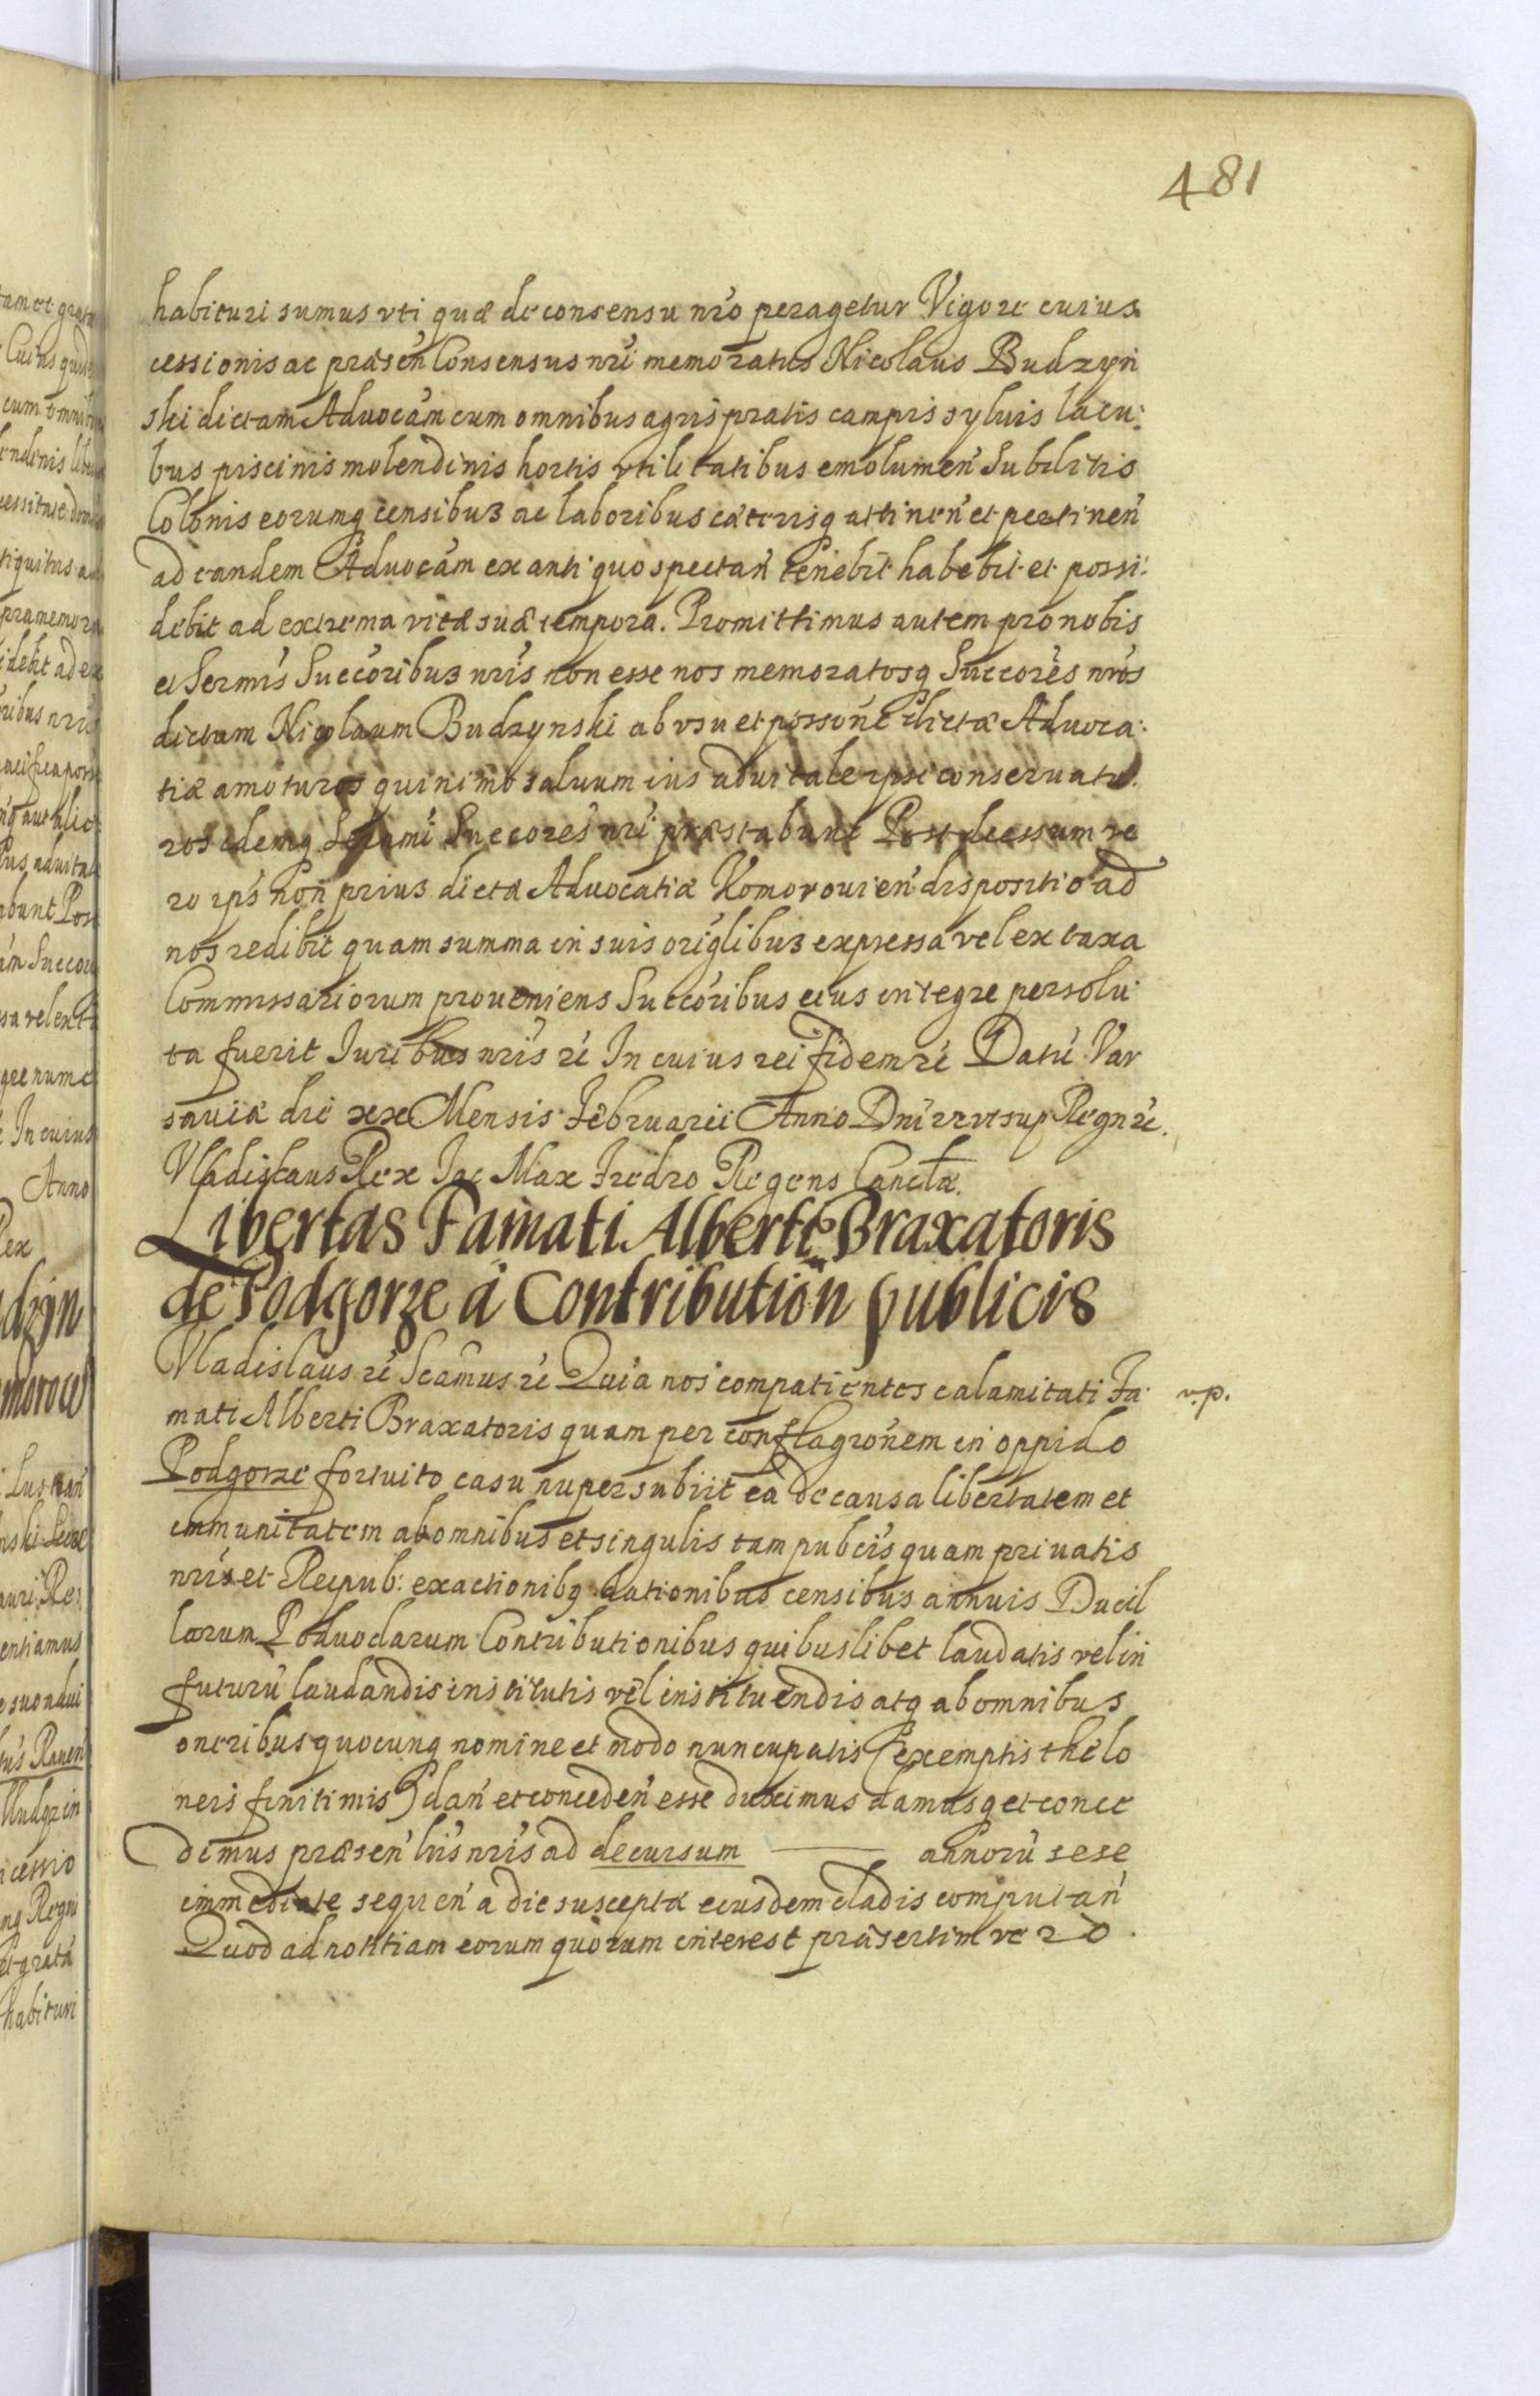 481
habituri sumus vti quæ de consensu nr̃o peragetur Vigore cuius
cessionis ac præsen̄ Consensus nr̃i memoratus Nicolaus Budzyn
ski dictam Aduocãm cum omnibus agris pratis campis syluis lacu:
bus piscinis molendinis hortis vtilitatibus emolumen̄ Subditis
Colonis eorumq censibus ac laboribus cæterisq attinen̄ et pertinen̄
ad eandem Aduocãm ex antiquo spectan̄ tenebit habebit et possi:
debit ad extrema vitæ suæ tempora. Promittimus autem pro nobis
et Sermis Succoribus nr̃is non esse nos memoratosq Succores nr̃os
dictum Nicolaum Budzynski ab vsu et possone dictæ Aduoca:
tiæ amoturos quinimo saluum ius aduitale ipsi conseruatu
ros idemq Serãmi Succores nr̃i præstabunt Post decessum ve
ro ips̃ non prius dictæ Advocatiæ Komorouien̄ dispositio ad
nos redibit quam summa in suis origlibus expressa vel ex taxa
Commissariorum proueniens Succoribus eius integre persolu
ta fuerit Iuribus nr̃is rẽ In cuius rei fidem rẽ Datũ Var
saviæ die xx Mensis Februarii Anno Dni vt sup Regn rẽ.
Vladislaus Rex Iac Max Fredro Regens Cancel̃a.
Libertas Famati Alberti Braxatoris
de Podgorze á Contribution publicis
Vladislaus rẽ Scãmus rẽ Quia nos compatientes calamitati Fa
v.p.
mati Alberti Braxatoris quam per conflagronem in oppido
Podgorze fortuito casu nuper subiit eà de causa libertatem et
immunitatem ab omnibus et singulis tam publis quam priuatis
nr̃is et Reipub: exactionibq dationibus censibus annuis Ducil
larum Poduodarum Contributionibus quibuslibet laudatis vel in
futurũ laudandis institutis vel instituendis atq ab omnibus
oneribus quocunq nomine et modo nuncupatis (exemptis thelo
neis finitimis) dan̄ et conceden̄ esse duximus damusq et conce
demus præsen̄ lr̃is nr̃is ad decursum —— annorũ sese
immediate sequen̄ a die susceptæ eiusdem cladis computan̄
Quod ad notitiam eorum quorum interest præsertim vero